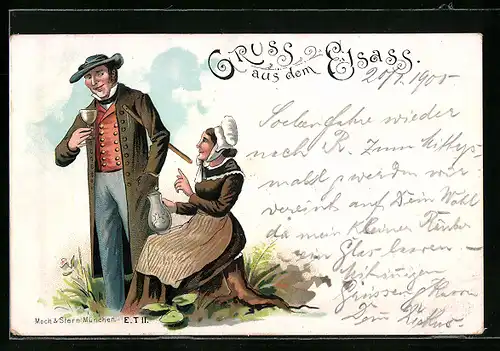 Gruss aus dem Elsass.
20/1. 1900
Soeben fahre wieder
nach R. Zum Mittags
mahl werden wir
vereint auf Dein Wohl
da mein kleiner
ein Glas leeren —
Grüsse
Dein
Mock & Stern München. E.T II.